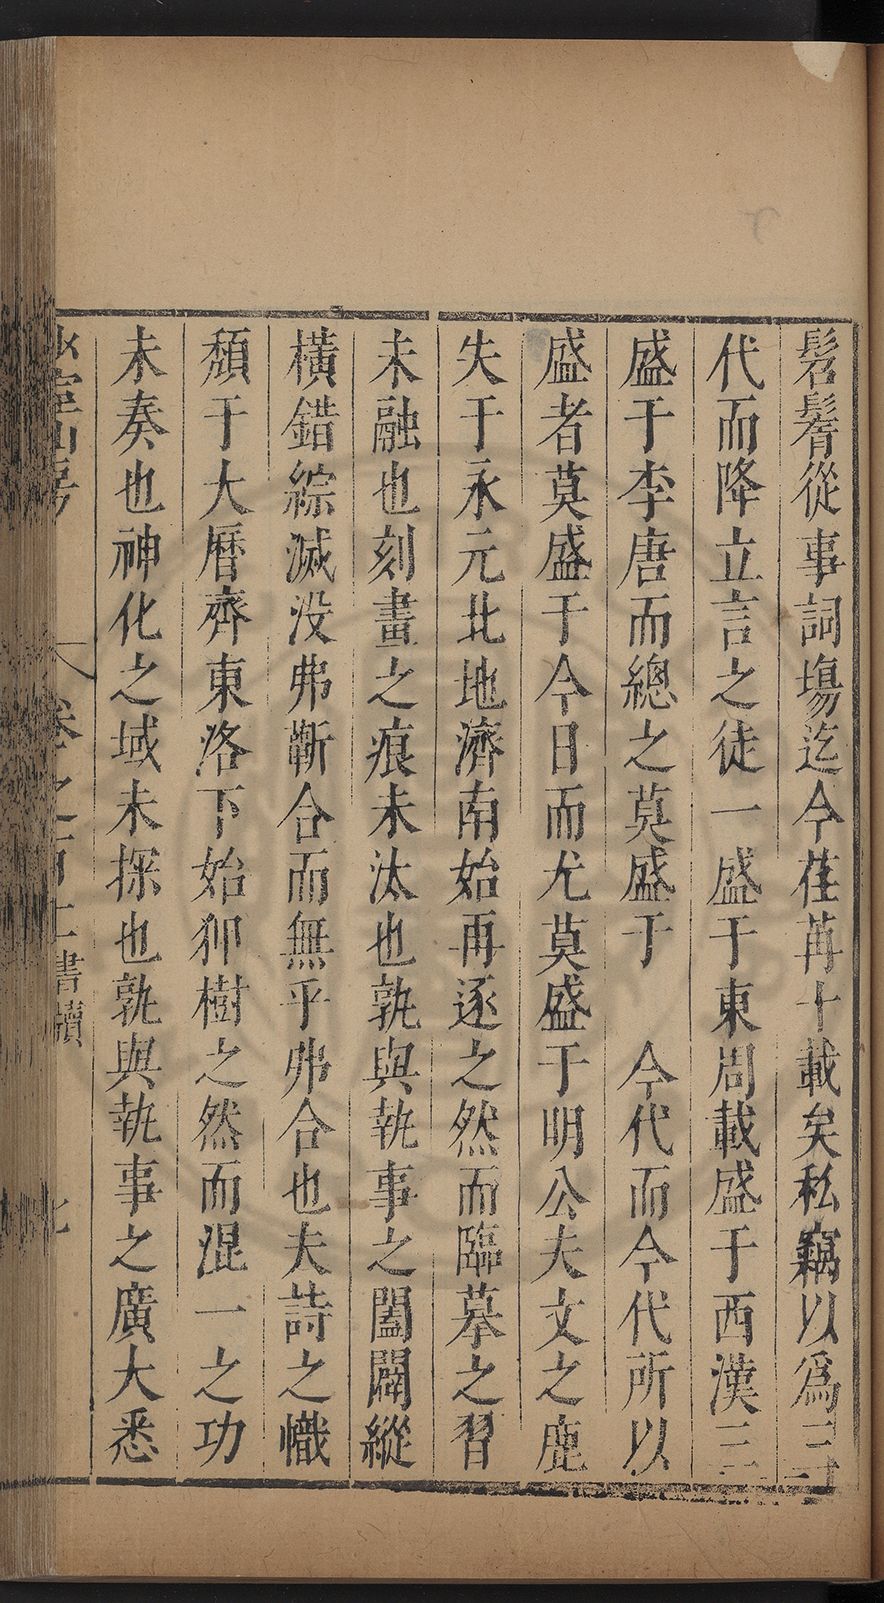 髫鬌從事詞塲迄今荏苒十載矣私竊以爲三
代而降立言之徒一盛于東周載盛于西漢三
盛于李唐而總之莫盛于　今代而今代所以
盛者莫盛于今日而尤莫盛于明公夫文之鹿
失于永元北地濟南始再逐之然而臨摹之習
未融也刻畫之痕未汰也孰與執事之闔闢縱
橫錯綜滅没弗蘄合而無乎弗合也夫詩之幟
頽于大曆齊東洛下始抑樹之然而混一之功
未奏也神化之域未探也孰與執事之廣大悉
卷之 書牘